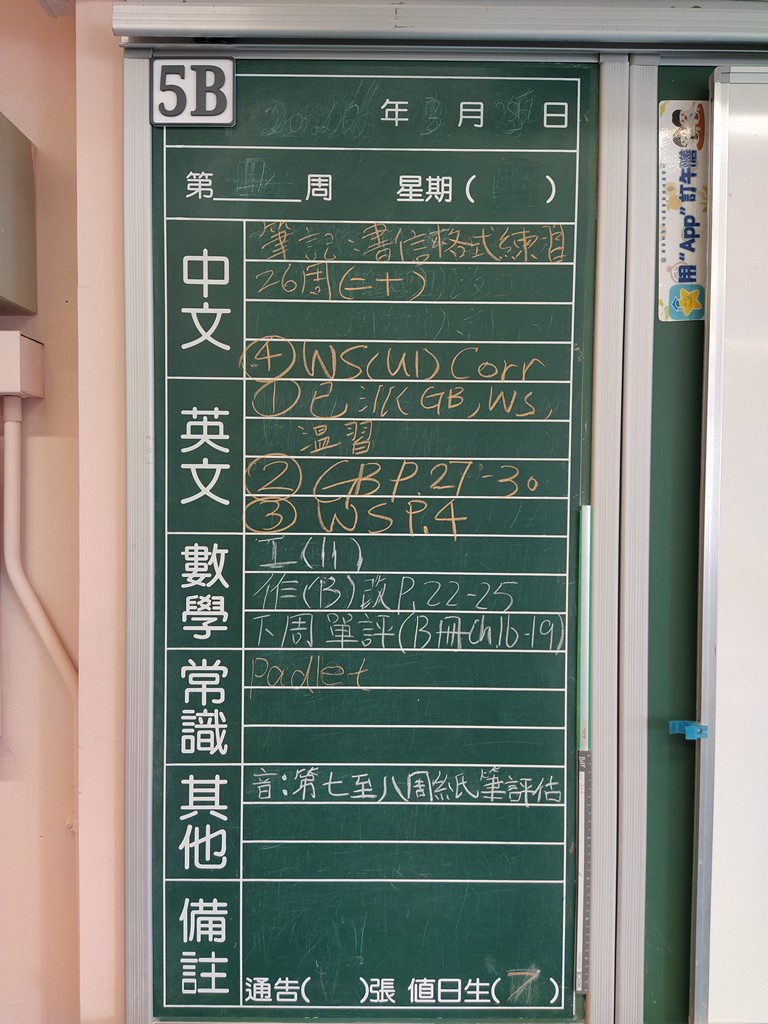 5B
年 月 日
第 周 星期( )
中文
筆記:書信格式練習
26周(二十)
④WS(U1) Corr
英文
①已派GB,WS,
溫習
②GB P.27-30
③WS P.4
數學
工(11)
作(B)改P.22-25
下周單評(B冊ch.16-19)
常識
Padlet
其他
音:第七至八周紙筆評估
備註
通告( )張 值日生(7)
用“App”訂午膳